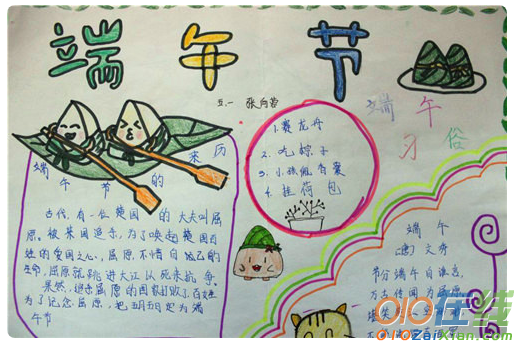 端午节
五.一 张向蓉
端午节的来历
古代,有一位楚国的大夫叫屈
原。被某国追杀,为了唤起楚国百
姓的爱国之心,屈原不惜自己的
生命。屈原就跳进大江以死来抗争。
果然,
屈原的国家打败了。百姓
为了记念屈原,把五月五日定为端
午节
1.赛龙舟
2.吃粽子
3.小孩佩香囊
4.挂荷包
端午
习俗
端午
文秀
节分端午自谁言,
万古传闻为屈原。
堪笑
不
010在线
010ZaiXian.com